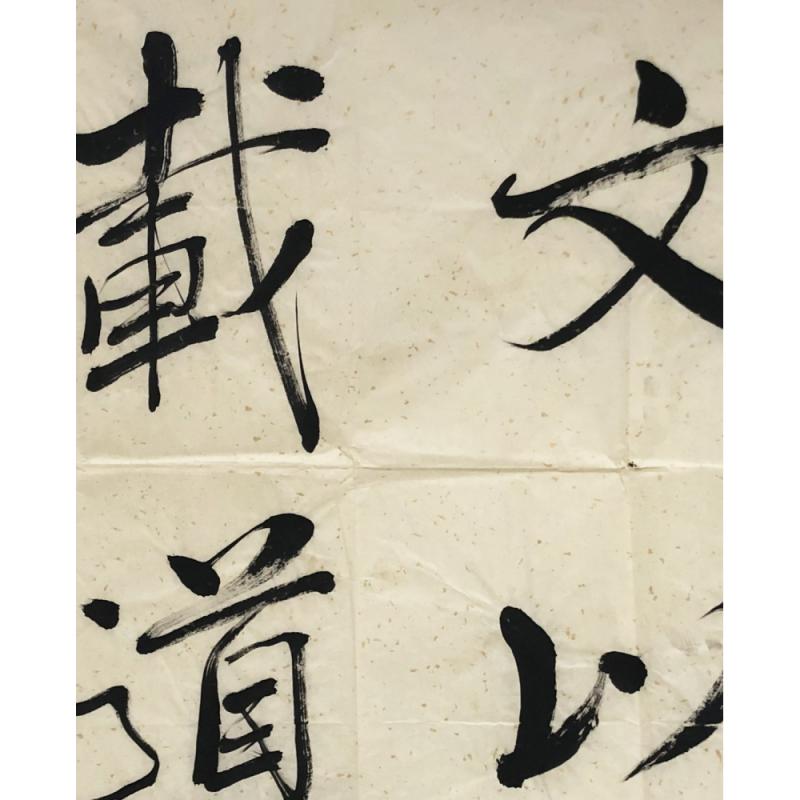 文以
載道